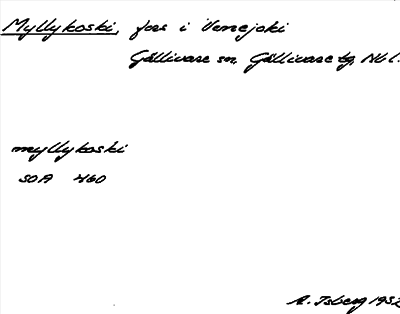 Myllykoski, fors i Venejoki
Gällivare sn, Gällivare tg, Nbl.
myllykoski
SOA 460
A. Isberg 1932